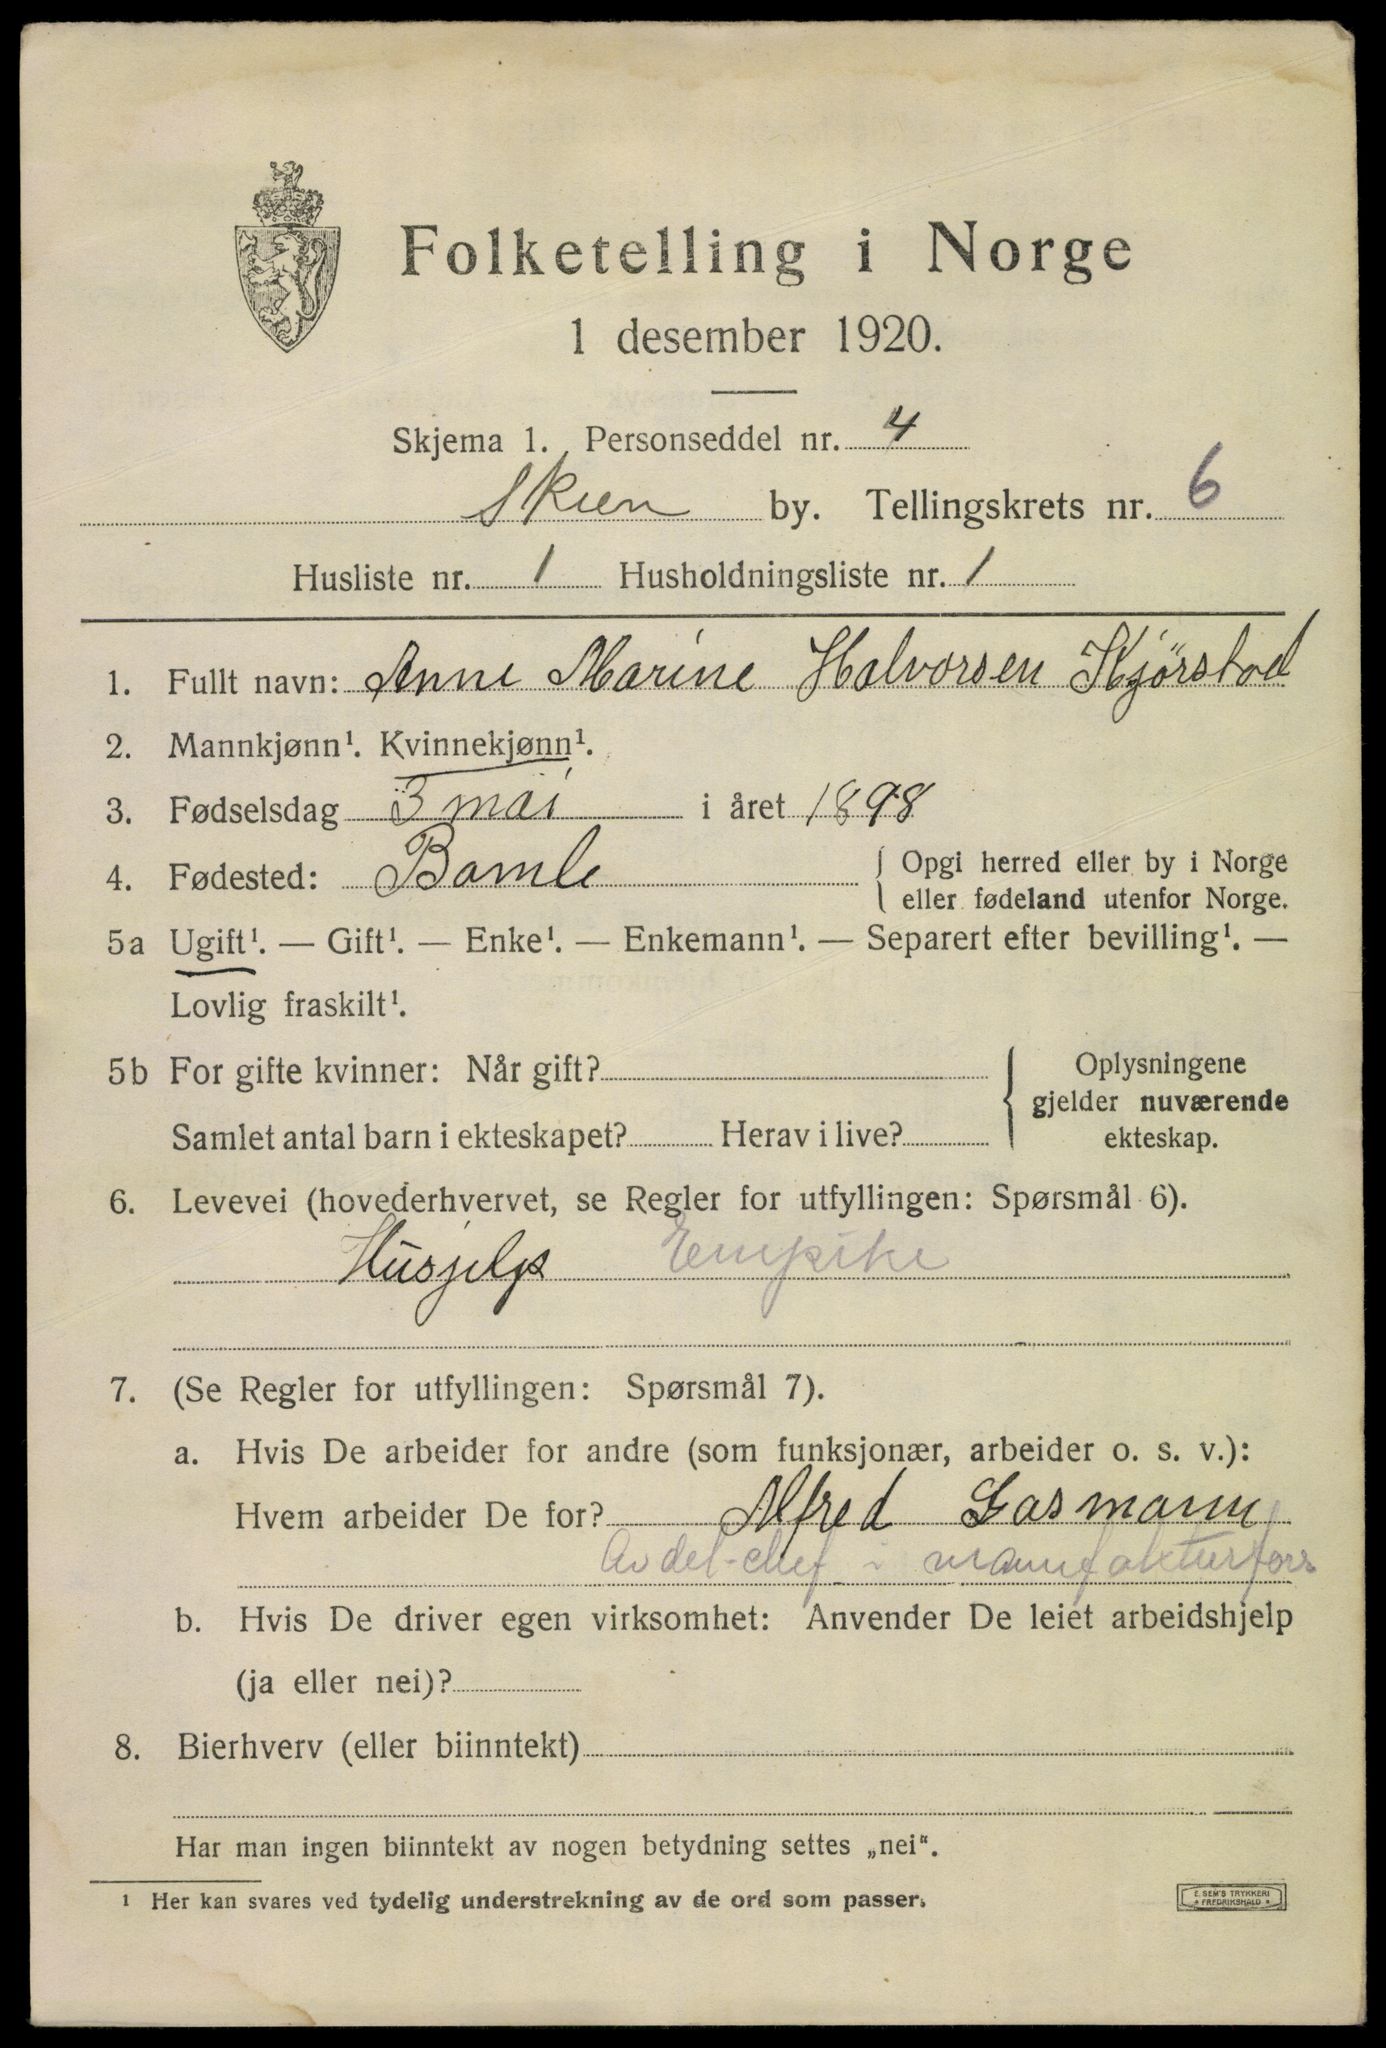 Folketelling i Norge
1 desember 1920.
Skjema 1. Personseddel nr. 4
Skien by. Tellingskrets nr. 6
Husliste nr. 1 Husholdningsliste nr. 1
1. Fullt navn: Anne Marine Halvorsen Kjørstad
2. Mannkjønn¹. Kvinnekjønn¹.
3. Fødselsdag 3 mai i året 1898
4. Fødested: Bamle { Opgi herred eller by i Norge
eller fødeland utenfor Norge.
5a Ugift¹. — Gift¹. — Enke¹. — Enkemann¹. — Separert efter bevilling¹. —
Lovlig fraskilt¹.
5b For gifte kvinner: Når gift? { Oplysningene
gjelder nuværende
Samlet antal barn i ekteskapet? Herav i live? ekteskap.
6. Levevei (hovederhvervet, se Regler for utfyllingen: Spørsmål 6).
Husjelp Enepike
7. (Se Regler for utfyllingen: Spørsmål 7).
a. Hvis De arbeider for andre (som funksjonær, arbeider o. s. v.):
Hvem arbeider De for? Alfred Gasmann
Avdel-chef i manufakturforr
b. Hvis De driver egen virksomhet: Anvender De leiet arbeidshjelp
(ja eller nei)?
8. Bierhverv (eller biinntekt)
Har man ingen biinntekt av nogen betydning settes „nei".
¹ Her kan svares ved tydelig understrekning av de ord som passer.
E. SEM'S TRYKKERI
FREDRIKSHALD